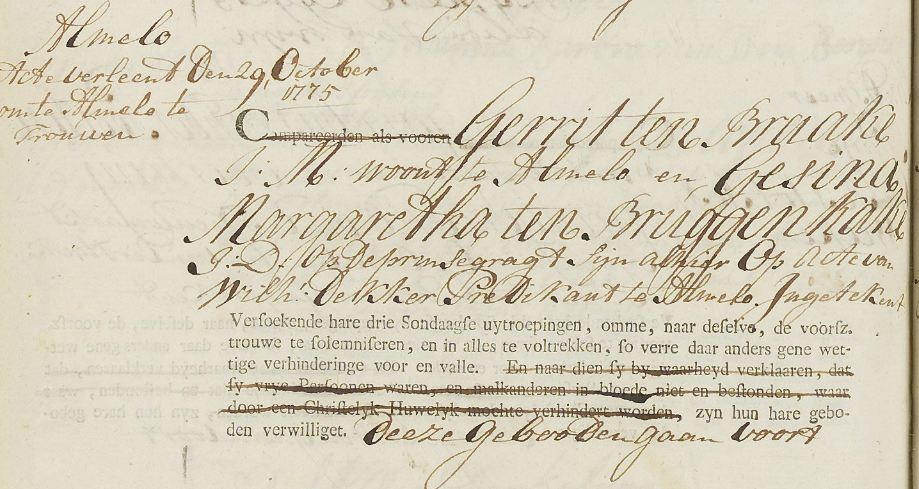 Almelo
Acte verleent Den 29 October
1775
omte Almelo te
Trouwen.
Compareerden als vooren Gerrit ten Braake
J: M: woont te Almelo en Gesina
Margaretha ten Bruggenkate
J: D: Op De prinsegragt Sijn alhier Op Acte van
Wilh: Dekker Predikant te Almelo Ingetekent
Versoekende hare drie Sondaagse uytroepingen, omme, naar deselve, de voorsz.
trouwe te solemniseren, en in alles te voltrekken, so verre daar anders gene wet-
tige verhinderinge voor en valle. En naar dien sy by waarheyd verklaaren, dat
sy vrye Persoonen waren, en malkanderen in bloede niet en bestonden, waar
door een Christelyk Huwelyk mochte verhindert worden, zyn hun hare gebo-
den verwilliget. Deeze Gebooden gaan voort